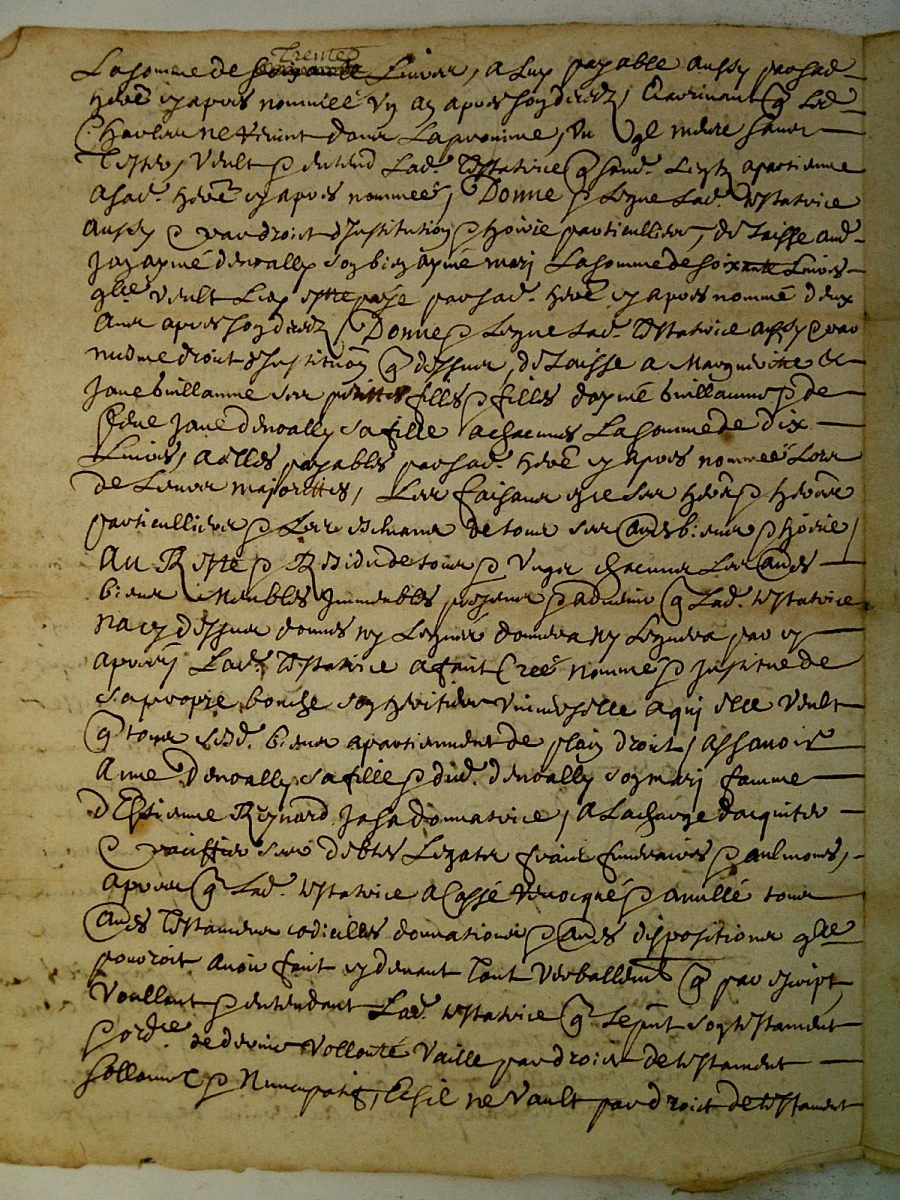 Trente
La somme de soixante Livres, a Luy payable aussy par sad.
here. cy apres nommée un an apres son deces, & advenant q Led.
Charles ne vint dans La province, ou
Tester, veult & entend Lad. testatrice q sond. Legat apartienne
a sad. here. cy apres nommée, Donne & Legue Lad. testatrice
aussy & par droict d'Institution & hoirie particulliere, delaisse aud.
Jay aymé denoally son bien aymé mary La somme de soixante Livres
qlle veult Luy estre payé par sad. here. cy apres nommé deux
ans apres son deces, Donne & Legue Lad. testatrice aussy & par
mesme droict d'Institution q dessus, delaisse a Marguerite &
Jane buillanne ses petittes filles & filles d'aymé buillanne & de
feue Jane denoally sa fille a chacunes La somme de dix
Livres, a elles payables par sad. here. cy apres nommée Lors
de Leurs majorittes, Les faisant
particullieres & Les de tous ses aues biens & hoirie,
Au Reste & Residu de tous & Ungs chacuns Les aues
biens Meubles Immeubles presens & advenir q Lad. testatrice
na cy dessus donnes ny Legues donnera ny Leguera par cy
apres, Lad. testatrice a fait Creé nommé & institué de
sa propre bouche son heritiere universelle a qui elle veult
q tous sesd. biens apartiennent de plain droict, assavoir
Anne denoally sa fille & dud. denoally son mary famme
d'Estienne Reynard Ja sa donnatrice, a La charge d'acquiter
& paciffier ses debtes Legats frais funeraires & aulmones,
apres q Lad. testatrice a Cassé revocqué & anullé tous
aues Testamens codicilles donnations & aues dispositions qlle
pouroit avoir fait cy devant Tant Verballemt q par escript
Voullant & entendant Lad. testatrice q Le pnt son testament
& ord.re de derniere vollonté vaille par droict de testament
sollannel & Nuncupatif, Et sil ne Vault par droict de testament